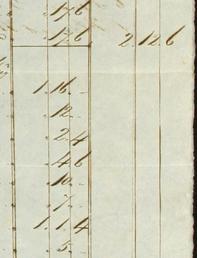 " 17. 6
" 17. 6 2. 12. 6
1. 16. "
" 12. "
" 2. 4
" 4. 6
" 10. "
" 7. "
1. 1. 4
" 5. "